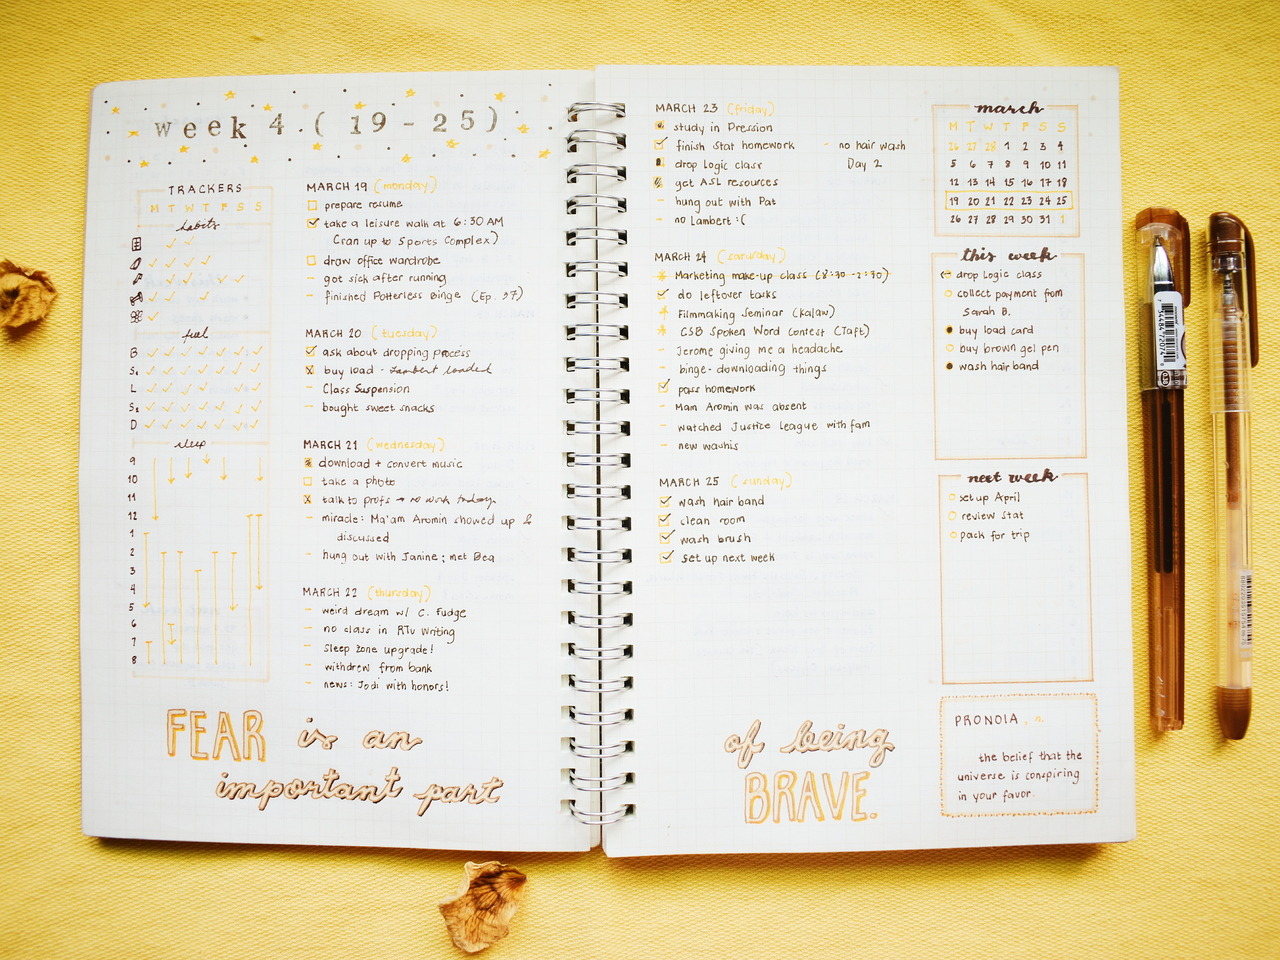 week 4. ( 19 - 25)
TRACKERS
M T W T F S S
habits
fuel
B
S₁
L
S₂
D
sleep
9
10
11
12
1
2
3
4
5
6
7
8
MARCH 19 (monday)
prepare resume
take a leisure walk at 6:30 AM
(ran up to Sports Complex)
draw office wardrobe
- got sick after running
- finished Potterless Binge (Ep. 37)
MARCH 20 (tuesday)
ask about dropping process
buy load - Lambert loaded
- Class Suspension
- bought sweet snacks
MARCH 21 (wednesday)
download + convert music
take a photo
talk to profs → no work today
- miracle: Ma'am Aromin showed up &
discussed
- hung out with Janine ; met Bea
MARCH 22 (thursday)
- weird dream w/ C. Fudge
- no class in RTV Writing
- sleep zone upgrade!
- withdrew from bank
- news: Jodi with honors!
FEAR is an
important part
MARCH 23 (friday)
study in Pression
finish Stat homework - no hair wash
drop Logic class Day 2
get ASL resources
- hung out with Pat
- no Lambert :(
MARCH 24 (saturday)
Marketing make-up class (8:30 - 2:30)
do leftover tasks
Filmmaking Seminar (Kalaw)
CSB Spoken Word Contest (Taft)
- Jerome giving me a headache
- binge-downloading things
pass homework
- Mam Aromin was absent
- watched Justice League with fam
- new washis
MARCH 25 (sunday)
wash hair band
clean room
wash brush
set up next week
of being
BRAVE.
march
M T W T F S S
26 27 28 1 2 3 4
5 6 7 8 9 10 11
12 13 14 15 16 17 18
19 20 21 22 23 24 25
26 27 28 29 30 31 1
this week
drop logic class
collect payment from
Sarah B.
buy load card
buy brown gel pen
wash hair band
next week
set up April
review Stat
pack for trip
PRONOIA, n.
the belief that the
universe is conspiring
in your favor.